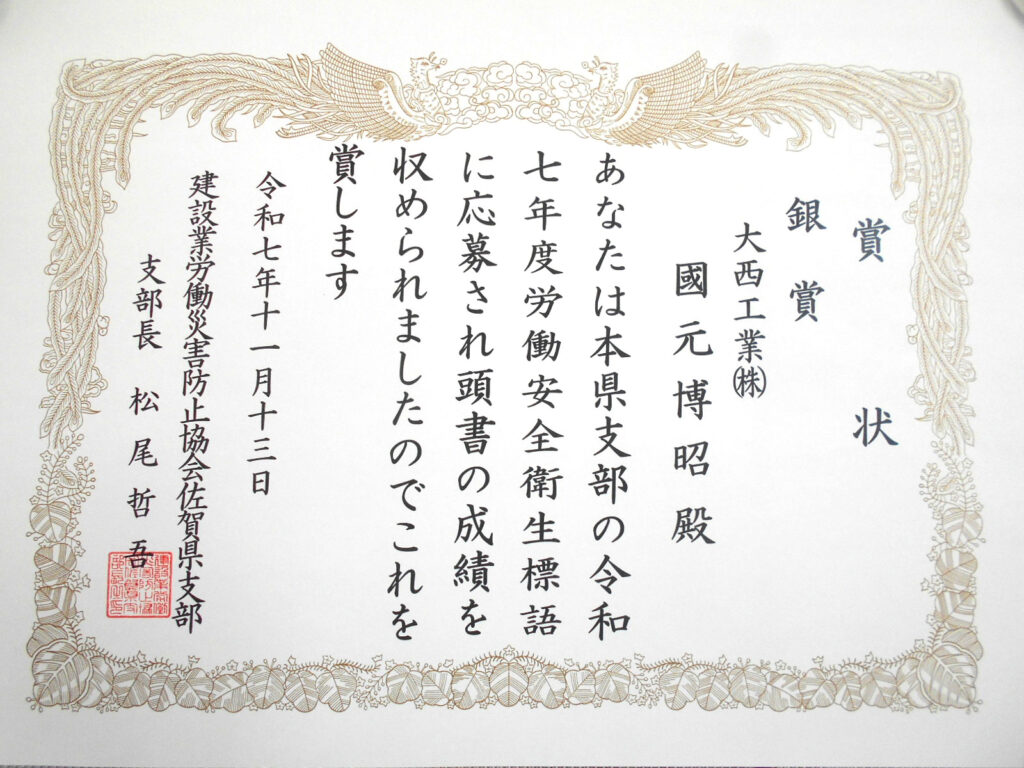 賞状
銀賞
大西工業㈱
國元博昭殿
あなたは本県支部の令和
七年度労働安全衛生標語
に応募され頭書の成績を
収められましたのでこれを
賞します
令和七年十一月十三日
建設業労働災害防止協会佐賀県支部
支部長 松尾哲吾